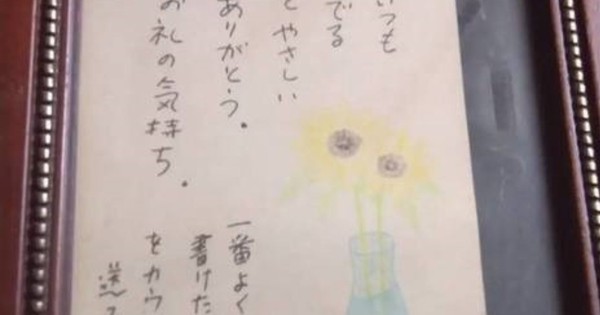 いつも
でる
とやさしい
ありがとう。
お礼の気持ち。
一番よく
書けた
をカウ
送っ